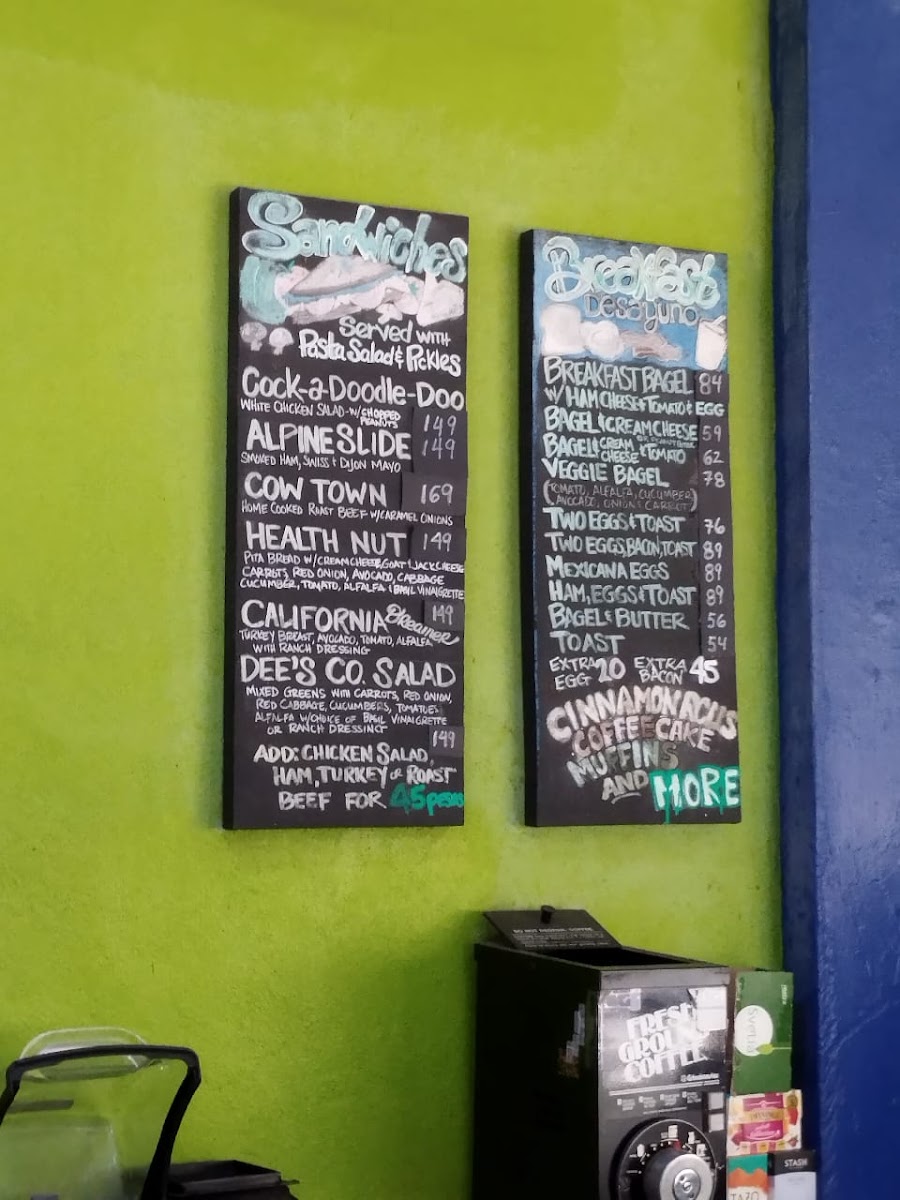 Sandwiches
Served with
Pasta Salad & Pickles
Cock-a-Doodle-Doo
WHITE CHICKEN SALAD-W/CHOPPED PEANUTS 149
ALPINE SLIDE 149
SMOKED HAM, SWISS & DIJON MAYO
COW TOWN 169
HOME COOKED ROAST BEEF W/CARAMEL ONIONS
HEALTH NUT 149
PITA BREAD W/CREAM CHEESE, GOAT & JACK CHEESE
CARROTS, RED ONION, AVOCADO, CABBAGE
CUCUMBER, TOMATO, ALFALFA & BASIL VINAIGRETTE
CALIFORNIA Dreamer 149
TURKEY BREAST, AVOCADO, TOMATO, ALFALFA
WITH RANCH DRESSING
DEE'S CO. SALAD
MIXED GREENS WITH CARROTS, RED ONION,
RED CABBAGE, CUCUMBERS, TOMATOES
ALFALFA W/CHOICE OF BASIL VINAIGRETTE
OR RANCH DRESSING
149
ADD: CHICKEN SALAD,
HAM, TURKEY OR ROAST
BEEF FOR 45 pesos
Breakfast
Desayuno
BREAKFAST BAGEL 84
W/ HAM CHEESE & TOMATO & EGG
BAGEL & CREAM CHEESE 59
OR PEANUT BUTTER
BAGEL & CREAM CHEESE & TOMATO 62
VEGGIE BAGEL 78
(TOMATO, ALFALFA, CUCUMBER
AVOCADO, ONION & CARROT)
TWO EGGS & TOAST 76
TWO EGGS, BACON, TOAST 89
MEXICANA EGGS 89
HAM, EGGS & TOAST 89
BAGEL & BUTTER 56
TOAST 54
EXTRA EGG 20 EXTRA BACON 45
CINNAMON ROLLS
COFFEE CAKE
MUFFINS
AND MORE
FRESH
GROUND
COFFEE
Svetia
STASH
TAZO